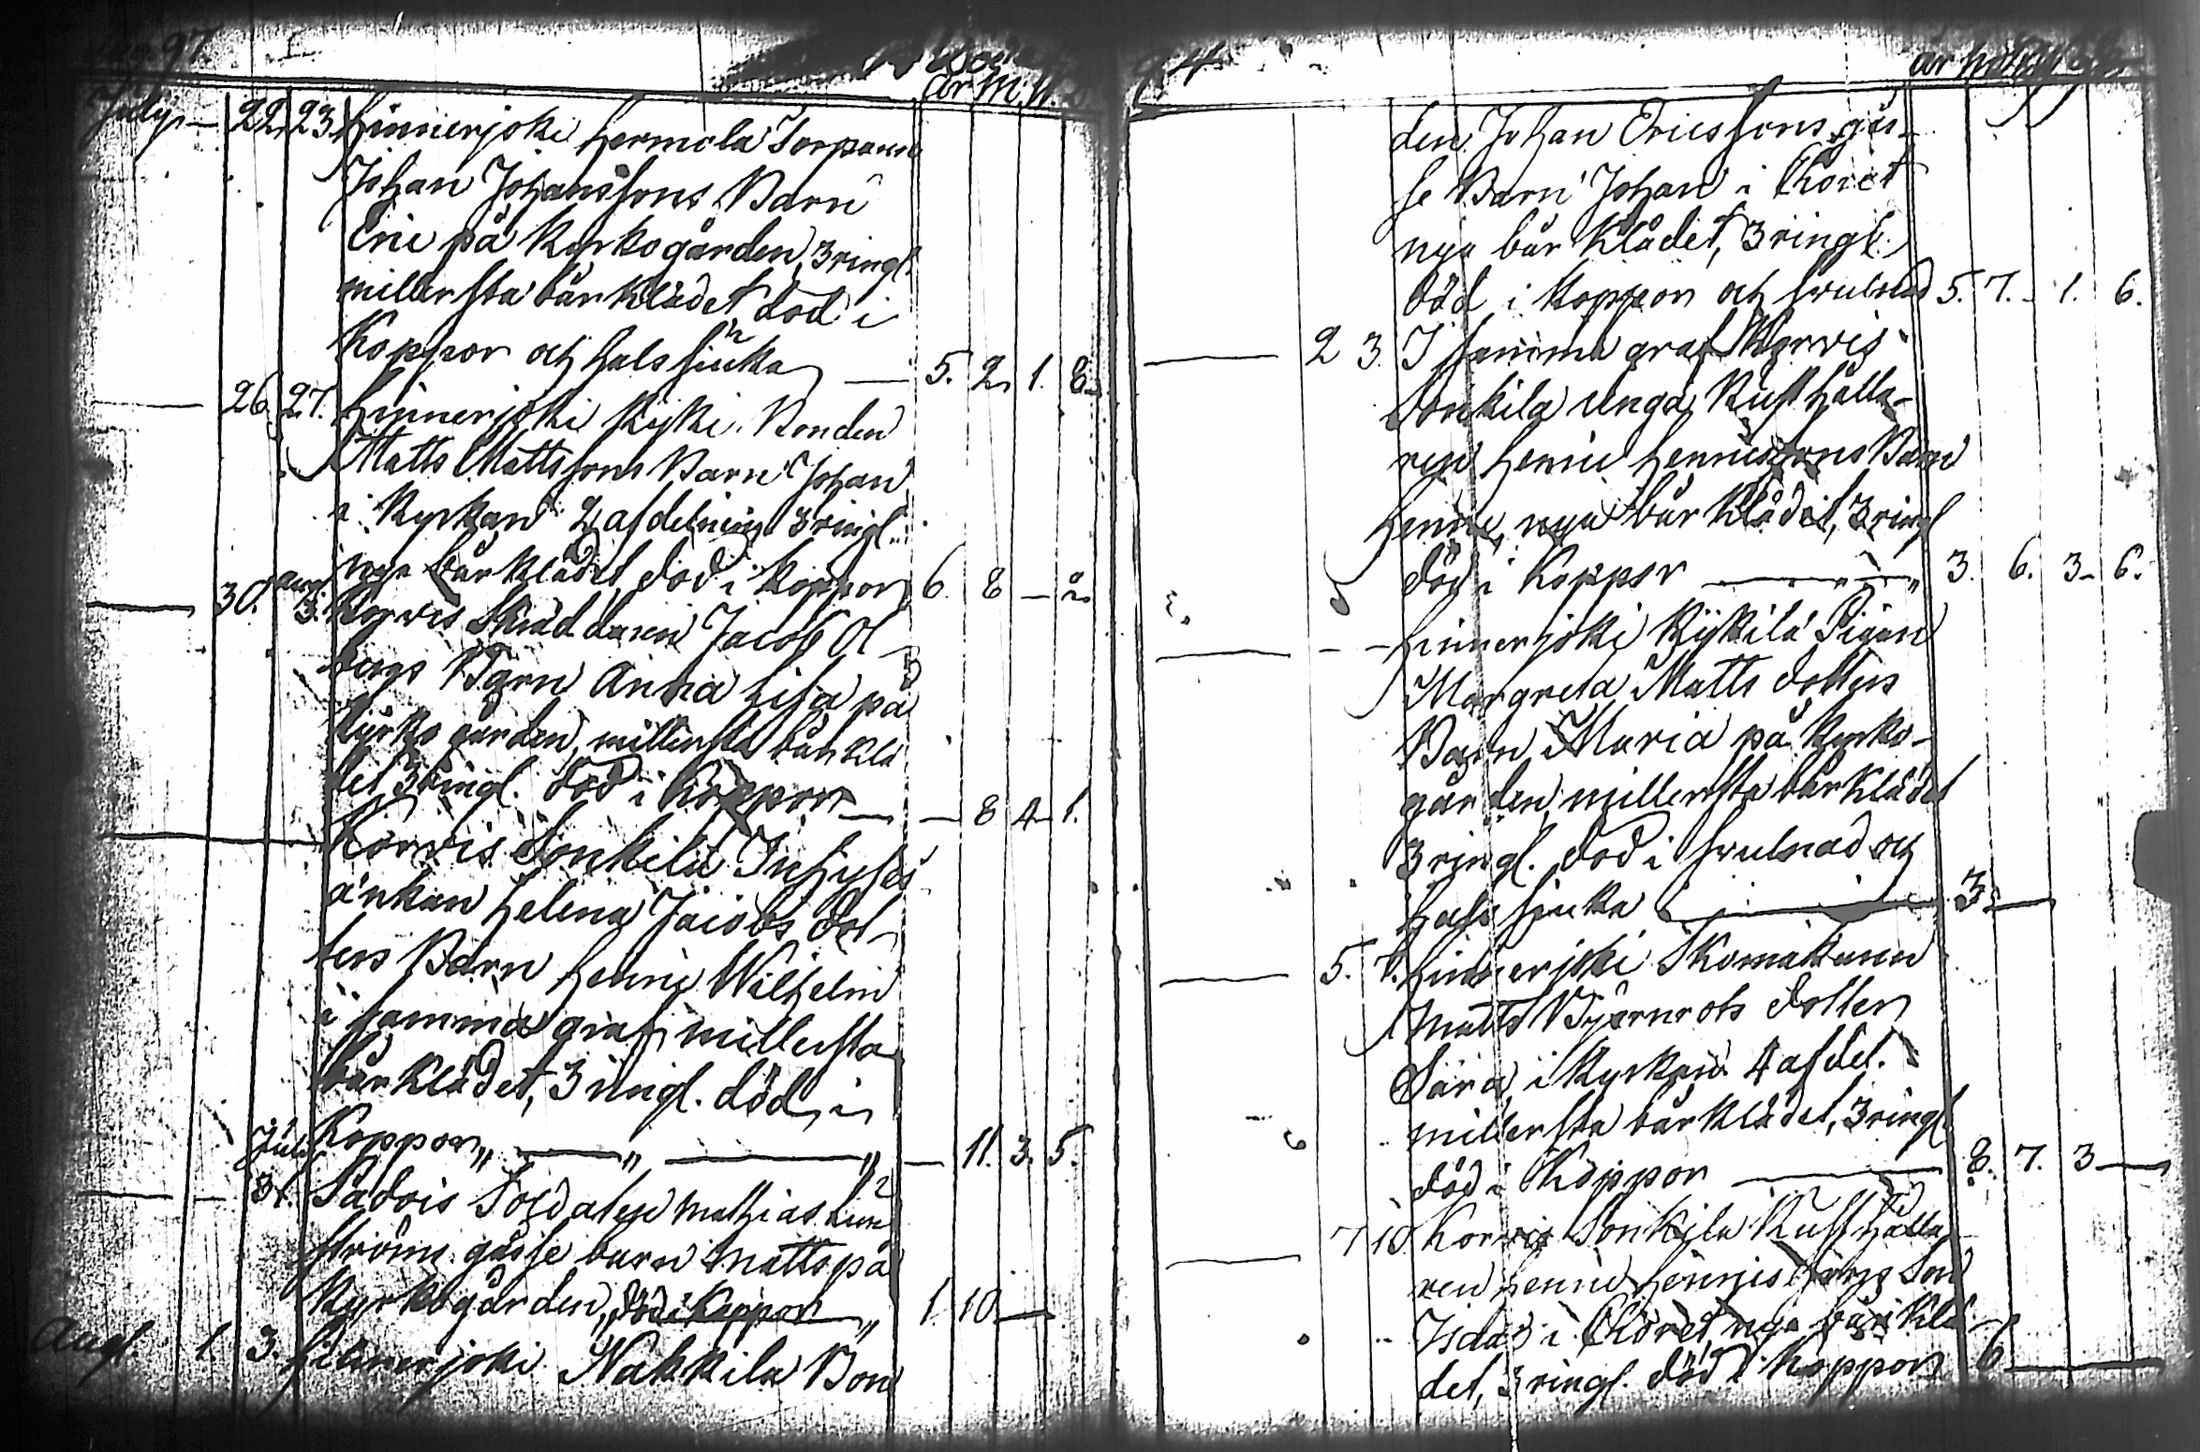 år M. W. d.
July — 22. 23. Hinnerjoki Hermola Torparen
Johan Johanssons Barn
Eric på kyrkogården, 3 ringl.
millersta bårklädet död i
Koppor och halssiuka — 5. 2. 1. 8.
26. 27. Hinnerjoki Kyki Bonden
Matts Mattssons Barn Johan
i kyrkan 2 afdelning 3 ringl.
nya bårklädet död i koppor 6. 8 — 2.
30. aug. 3. Korvis Skräddaren Jacob Ol-
bergs Barn Anna Lisa på
kyrko gården, millersta bår klä
det 3 ringl. död i Koppor — — 8 4 1.
Korvis Sonkila Inhyses
änkan Helena Jacobs dot-
ters Barn Henric Wilhelm
i samma graf millersta
bårklädet, 3 ringl. död i
Koppor „ — „ — „ — 11. 3. 5.
July 31. Sadois Soldaten Mathias Lin
ströms gåsse barn Matts på
kyrkogården, död i Koppor „ 1. 10 —
Aug. 1 3. Hinnerjoki Nakkila Bon
den Johan Ericssons gås-
se Barn Johan i Choret
nya bår klädet, 3 ringl.
död i koppor och svulnad 5. 7. 1. 6.
2 3. I samma graf Korvis
Sonkila unga Rusthålla-
ren Henric Henricssons Barn
Henric, nya bår klädet, 3 ringl
död i koppor — „ 3. 6. 3 6.
— — Hinnerjoki Kyskilä Pigan
Margreta Matts dotters
Barn Maria på kyrko-
gården millersta bårklädet
3 ringl. död i svulnad och
hals siuka — 3. —
5. 7. Hinnerjoki Skomakaren
Matts Björnrots dotter
Sara, i kyrkan 4 afdel.
millersta bårklädet, 3 ringl
död i Koppor — 8. 7. 3 —
7 10. Korvis Sonkila Rusthålla
ren Henric Henricssons Son
Isaac i Choret nya bårklä
det, 3 ringl. död i koppor 6 —